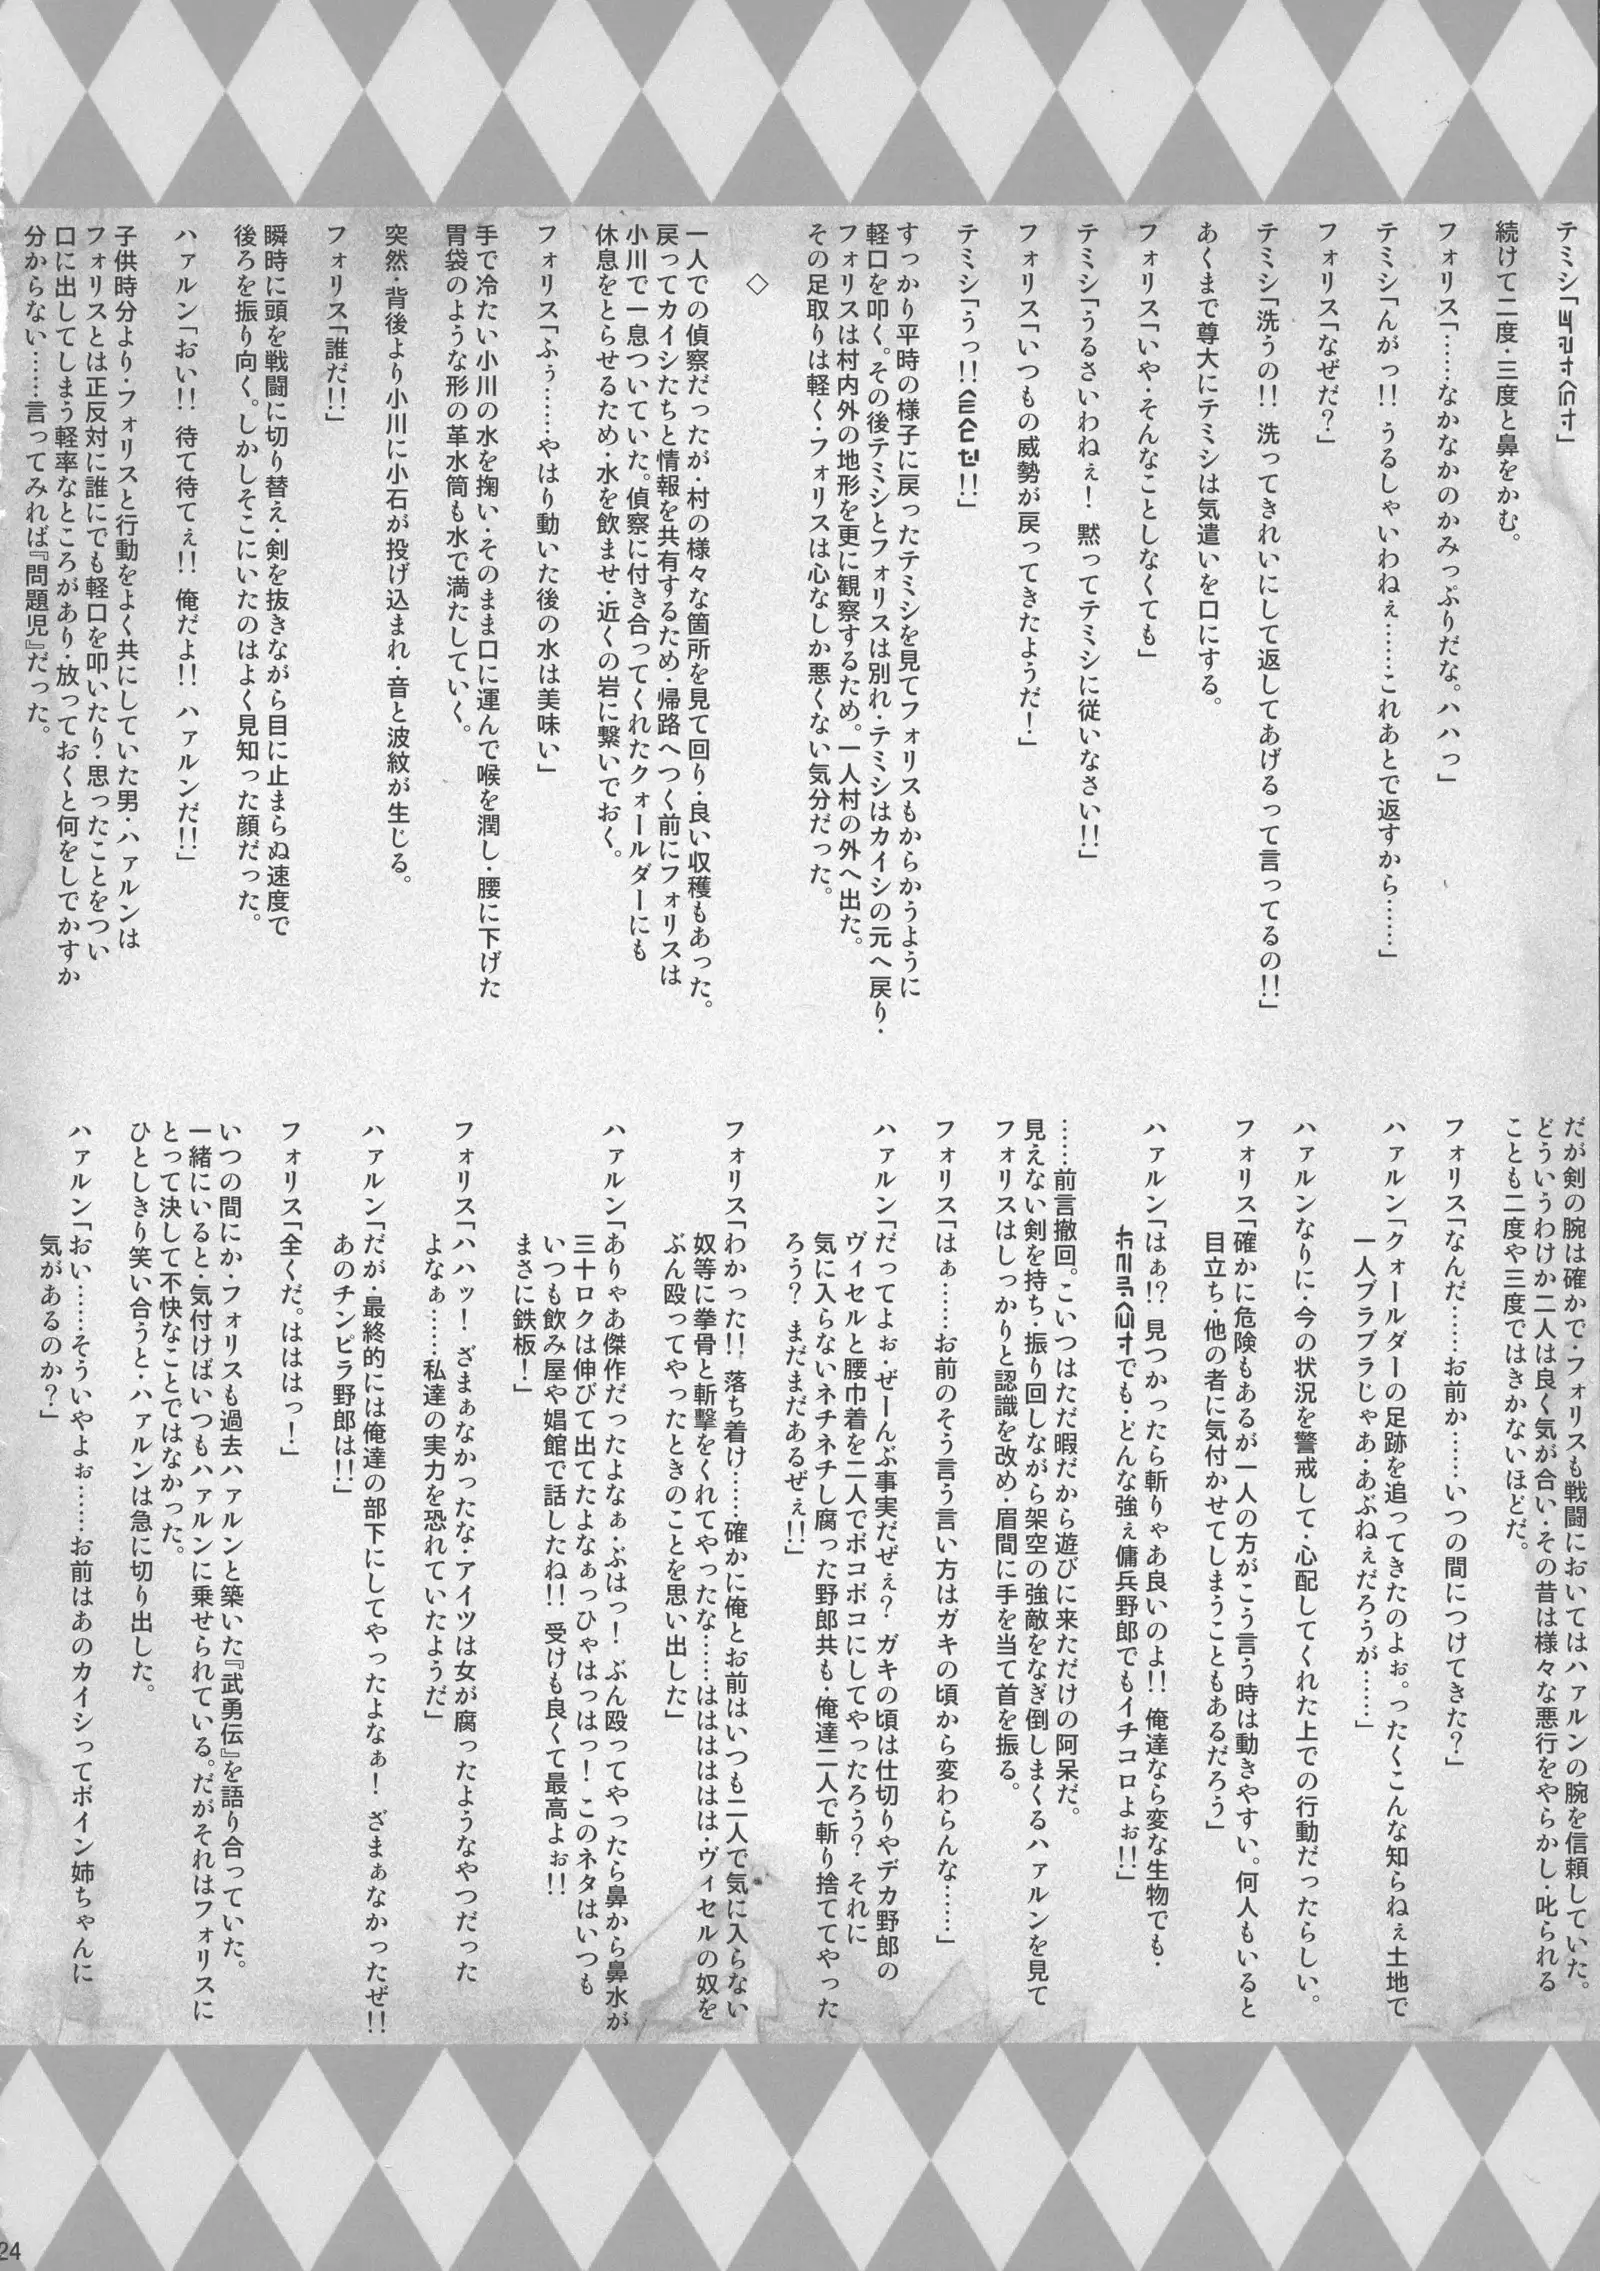 テミシ「
続けて二度・三度と鼻をかむ。
フォリス「……なかなかのかみっぷりだな。ハハっ」
テミシ「んがっ!! うるしゃいわねぇ……これあとで返すから……」
フォリス「なぜだ?」
テミシ「洗うの!! 洗ってきれいにして返してあげるって言ってるの!!」
あくまで尊大にテミシは気遣いを口にする。
フォリス「いや・そんなことしなくても」
テミシ「うるさいわねぇ! 黙ってテミシに従いなさい!!」
フォリス「いつもの威勢が戻ってきたようだ!」
テミシ「うっ!! !!」
すっかり平時の様子に戻ったテミシを見てフォリスもからかうように
軽口を叩く。その後テミシとフォリスは別れ・テミシはカイシの元へ戻り・
フォリスは村内外の地形を更に観察するため。一人村の外へ出た。
その足取りは軽く・フォリスは心なしか悪くない気分だった。
◇
一人での偵察だったが・村の様々な箇所を見て回り・良い収穫もあった。
戻ってカイシたちと情報を共有するため・帰路へつく前にフォリスは
小川で一息ついていた。偵察に付き合ってくれたクォールダーにも
休息をとらせるため・水を飲ませ・近くの岩に繋いでおく。
フォリス「ふぅ……やはり動いた後の水は美味い」
手で冷たい小川の水を掬い・そのまま口に運んで喉を潤し・腰に下げた
胃袋のような形の革水筒も水で満たしていく。
突然・背後より小川に小石が投げ込まれ・音と波紋が生じる。
フォリス「誰だ!!」
瞬時に頭を戦闘に切り替え・剣を抜きながら目に止まらぬ速度で
後ろを振り向く。しかしそこにいたのはよく見知った顔だった。
ハァルン「おい!! 待て待てぇ!! 俺だよ!! ハァルンだ!!」
子供時分より・フォリスと行動をよく共にしていた男・ハァルンは
フォリスとは正反対に誰にでも軽口を叩いたり・思ったことをつい
口に出してしまう軽率なところがあり・放っておくと何をしでかすか
分からない……言ってみれば『問題児』だった。
だが剣の腕は確かで・フォリスも戦闘においてはハァルンの腕を信頼していた。
どういうわけか二人は良く気が合い・その昔は様々な悪行をやらかし・叱られる
ことも二度や三度ではきかないほどだ。
フォリス「なんだ……お前か……いつの間につけてきた?」
ハァルン「クォールダーの足跡を追ってきたのよぉ。ったくこんな知らねぇ土地で
一人ブラブラじゃあ・あぶねぇだろうが……」
ハァルンなりに・今の状況を警戒して・心配してくれた上での行動だったらしい。
フォリス「確かに危険もあるが一人の方がこう言う時は動きやすい。何人もいると
目立ち・他の者に気付かせてしまうこともあるだろう」
ハァルン「はぁ!? 見つかったら斬りゃあ良いのよ!! 俺達なら変な生物でも・
でも・どんな強ぇ傭兵野郎でもイチコロよぉ!!」
……前言撤回。こいつはただ暇だから遊びに来ただけの阿呆だ。
見えない剣を持ち・振り回しながら架空の強敵をなぎ倒しまくるハァルンを見て
フォリスはしっかりと認識を改め・眉間に手を当て首を振る。
フォリス「はぁ……お前のそう言う言い方はガキの頃から変わらんな……」
ハァルン「だってよぉ・ぜーんぶ事実だぜぇ? ガキの頃は仕切りやデカ野郎の
ヴィセルと腰巾着を二人でボコボコにしてやったろう? それに
気に入らないネチネチし腐った野郎共も・俺達二人で斬り捨ててやった
ろう? まだまだあるぜぇ!!」
フォリス「わかった!! 落ち着け……確かに俺とお前はいつも二人で気に入らない
奴等に拳骨と斬撃をくれてやったな……はははははは・ヴィセルの奴を
ぶん殴ってやったときのことを思い出した」
ハァルン「ありゃあ傑作だったよなぁ・ぶはっ! ぶん殴ってやったら鼻から鼻水が
三十ロクは伸びて出てたよなぁっひゃはっはっ! このネタはいつも
いつも飲み屋や娼館で話したね!! 受けも良くて最高よぉ!!
まさに鉄板!」
フォリス「ハハッ! ざまぁなかったな・アイツは女が腐ったようなやつだった
よなぁ……私達の実力を恐れていたようだ」
ハァルン「だが・最終的には俺達の部下にしてやったよなぁ! ざまぁなかったぜ!!
あのチンピラ野郎は!!」
フォリス「全くだ。はははっ!」
いつの間にか・フォリスも過去ハァルンと築いた『武勇伝』を語り合っていた。
一緒にいると・気付けばいつもハァルンに乗せられている。だがそれはフォリスに
とって決して不快なことではなかった。
ひとしきり笑い合うと・ハァルンは急に切り出した。
ハァルン「おい……そういやよぉ……お前はあのカイシってボイン姉ちゃんに
気があるのか?」
24